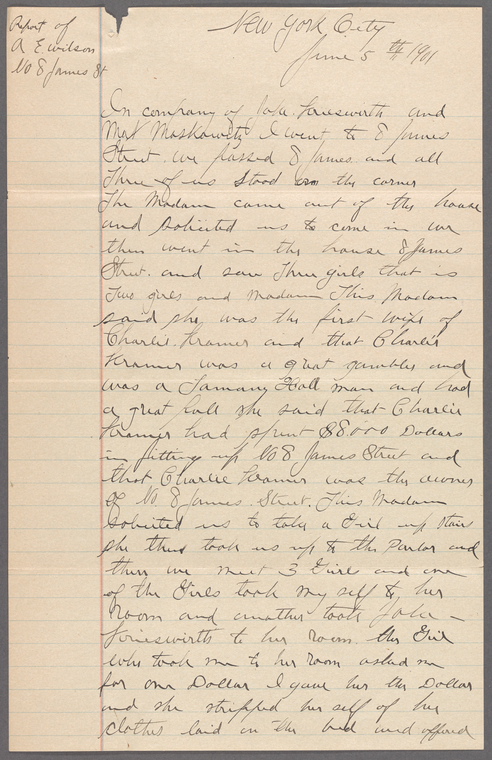 Report of
A E Wilson
No 8 James St
New York City
June 5th 1901
In company of Jake and
Max Moskowitz I went to 8 James
Street. we passed 8 James and all
Three of us stood on the corner
The Madam came out of the house
and solicited us to come in we
then went in the house 8 James
Street. and saw Three girls that is
Two girls and Madam This Madam
said she was the first wife of
Charlie Kramer and that Charlie
Kramer was a great gambler and
was a Tamany Hall man and had
a great pull she said that Charlie
Kramer had spent $8.000 Dollars
in fitting up No 8 James Street and
that Charlie Kramer was the owner
of No 8 James. Street. This Madam
solicited us to take a Girl up stairs
she then took us up to the Parlor and
there we meet 3 Girls and one
of the Girls took my self to her
Room and another took Jake
to her room the Girl
who took me to her room asked me
for one Dollar I gave her the Dollar
and she stripped her self of her
clothes laid on the bed and offered